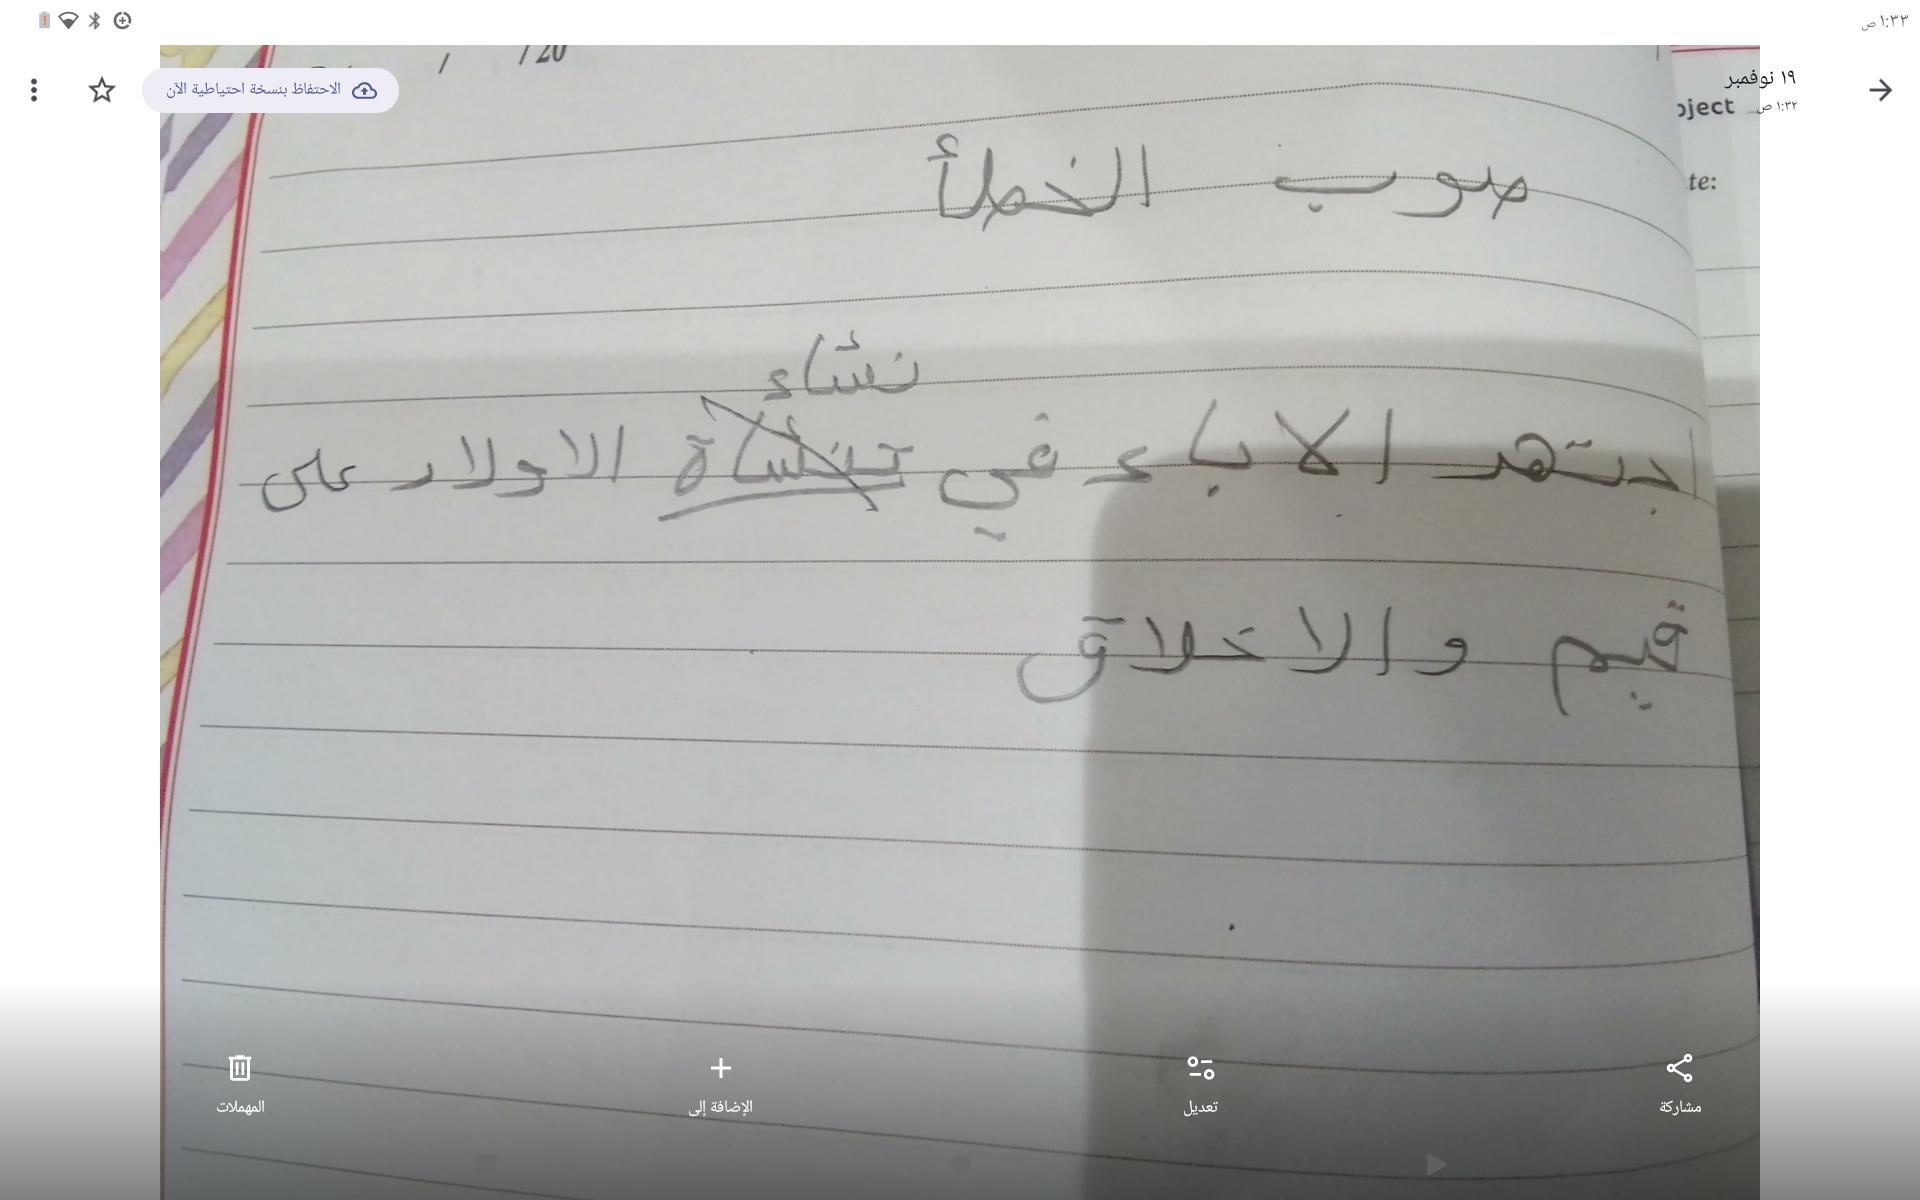 ١:٣٣ ص
/ /20
١٩ نوفمبر
١:٣٢ ص
الاحتفاظ بنسخة احتياطية الآن
oject
te:
صوب الخطأ
نشأء
اجتهد الاباء في تنشأة الاولاد على
قيم والاخلاق
مشاركة
تعديل
الإضافة إلى
المهملات